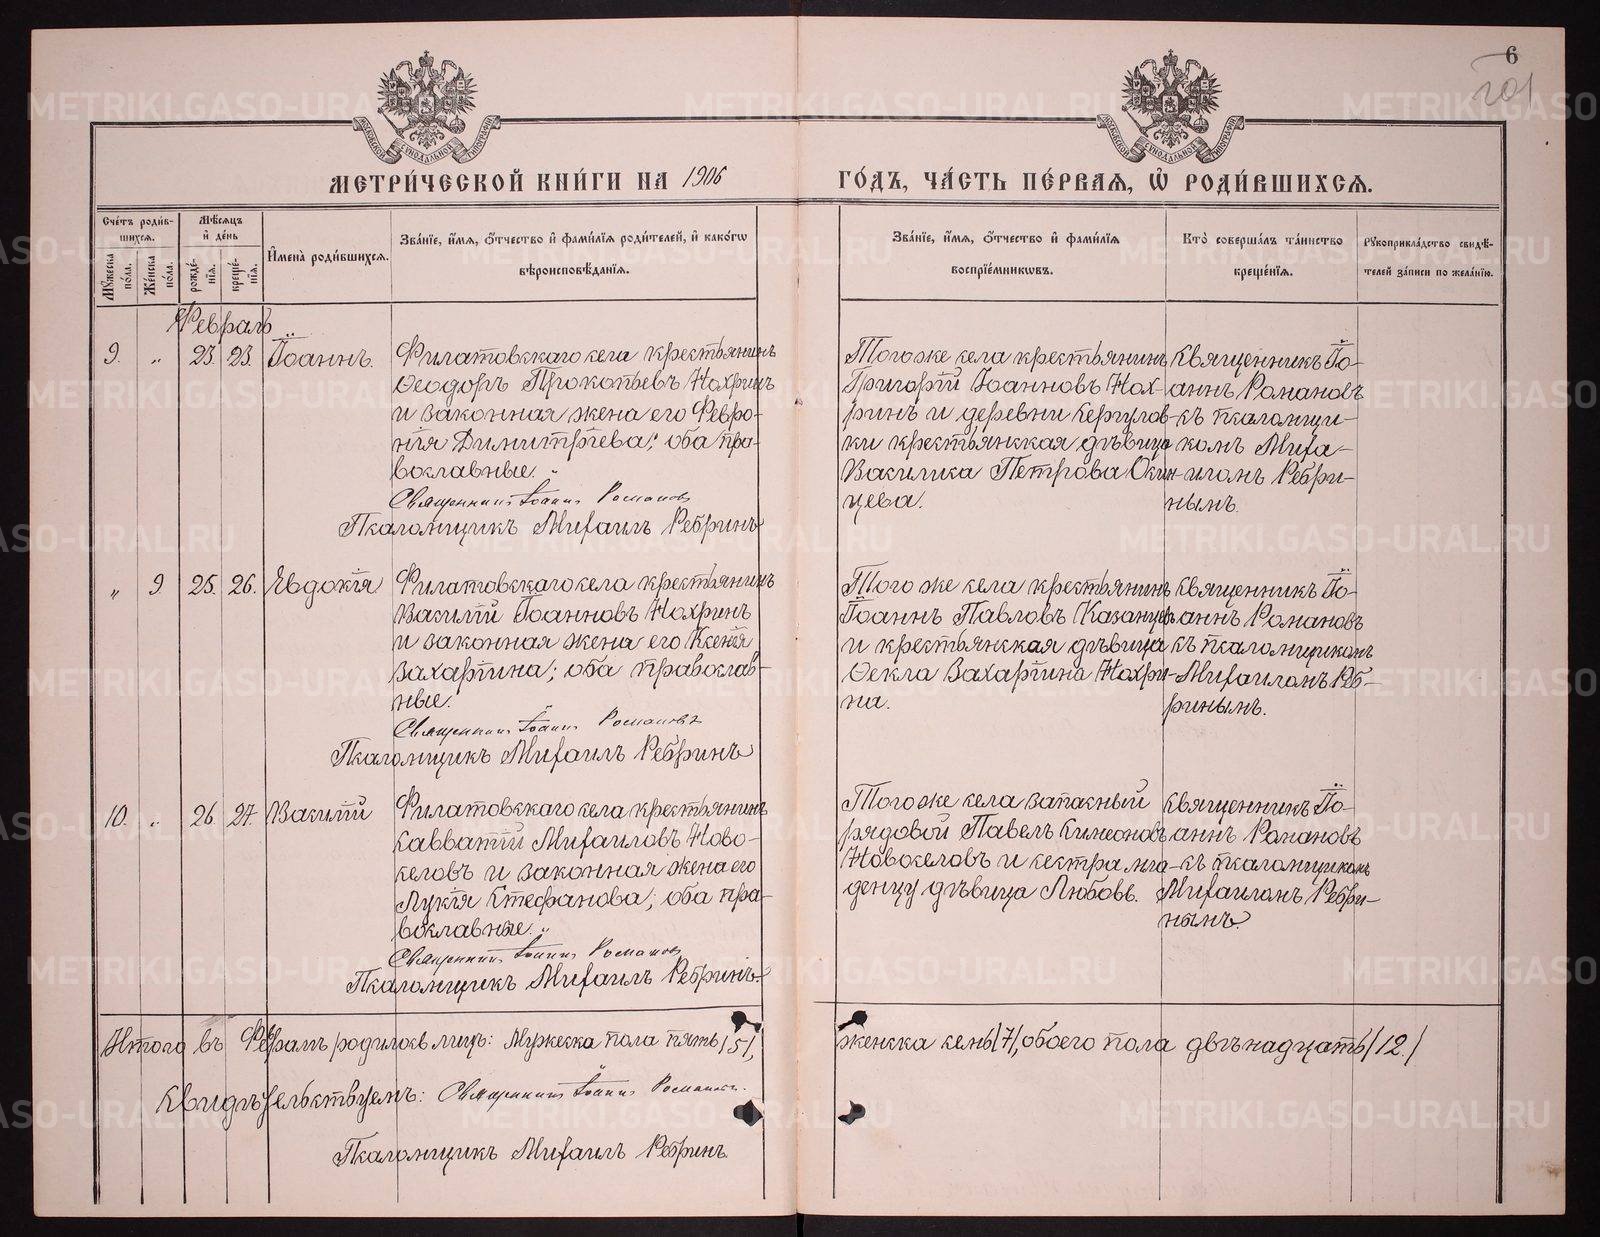 6
201
МЕТРИ́ЧЕСКОЙ КНИ́ГИ НА 1906 ГО́ДЪ, ЧА́СТЬ ПЕ́РВАЯ, Ѡ҆ РОДИ́ВШИХСЯ.
Сче́тъ роди́в-
шихся.
Мꙋ́жеска по́ла.
Же́нска по́ла.
Мѣ́сяцъ
и҆ де́нь
рожде́-
нїя.
креще́-
нїя.
И҆мена̀ роди́вшихся.
Зва́нїе, и҆́мя, ѻ҆́тчество и҆ фами́лїя роди́телей, и҆ како́гѡ
вѣроисповѣ́данїя.
Зва́нїе, и҆́мя, ѻ҆́тчество и҆ фами́лїя
воспрїе́мниковъ.
Кто̀ соверша́лъ та́инство
креще́нїя.
Рꙋкоприкла́дство свидѣ́-
телей за́писи по жела́нїю.
Февраль
9. „ 23. 23. Іоаннъ.
Филатовскаго села крестьянинъ
Ѳеодоръ Прокопьевъ Нохринъ
и законная жена его Февро-
нія Димитріева; оба пра-
вославные.
Священникъ Іоаннъ Романовъ
Псаломщикъ Михаилъ Ребринъ
Того же села крестьянинъ
Григорій Іоанновъ Нох-
ринъ и деревни Сергулов-
ки крестьянская дѣвица
Василиса Петрова Окин-
цева.
Священникъ Іо-
аннъ Романовъ
съ псаломщи-
комъ Миха-
иломъ Ребри-
нымъ.
„ 9 25. 26. Евдокія
Филатовскаго села крестьянинъ
Василій Іоанновъ Нохринъ
и законная жена его Ксенія
Захаріина; оба православ-
ные.
Священникъ Іоаннъ Романовъ
Псаломщикъ Михаилъ Ребринъ
Того же села крестьянинъ
Іоаннъ Павловъ Казанцевъ
и крестьянская дѣвица
Ѳекла Захаріина Нохри-
на.
Священникъ Іо-
аннъ Романовъ
съ псаломщикомъ
Михаиломъ Реб-
ринымъ.
10. „ 26 27. Василій
Филатовскаго села крестьянинъ
Савватій Михаиловъ Ново-
селовъ и законная жена его
Лукія Стефанова; оба пра-
вославные.
Священникъ Іоаннъ Романовъ
Псаломщикъ Михаилъ Ребринъ.
Того же села запасный
рядовой Павелъ Симеоновъ
Новоселовъ и сестра мла-
денцу дѣвица Любовь.
Священникъ Іо-
аннъ Романовъ
съ псаломщикомъ
Михаиломъ Ребри-
нымъ.
Итого въ Февралѣ родилось лицъ: мужеска пола пять /5/, женска семь /7/, обоего пола двѣнадцать /12./
Свидѣтельствуемъ: Священникъ Іоаннъ Романовъ.
Псаломщикъ Михаилъ Ребринъ.
METRIKI.GASO-URAL.RU